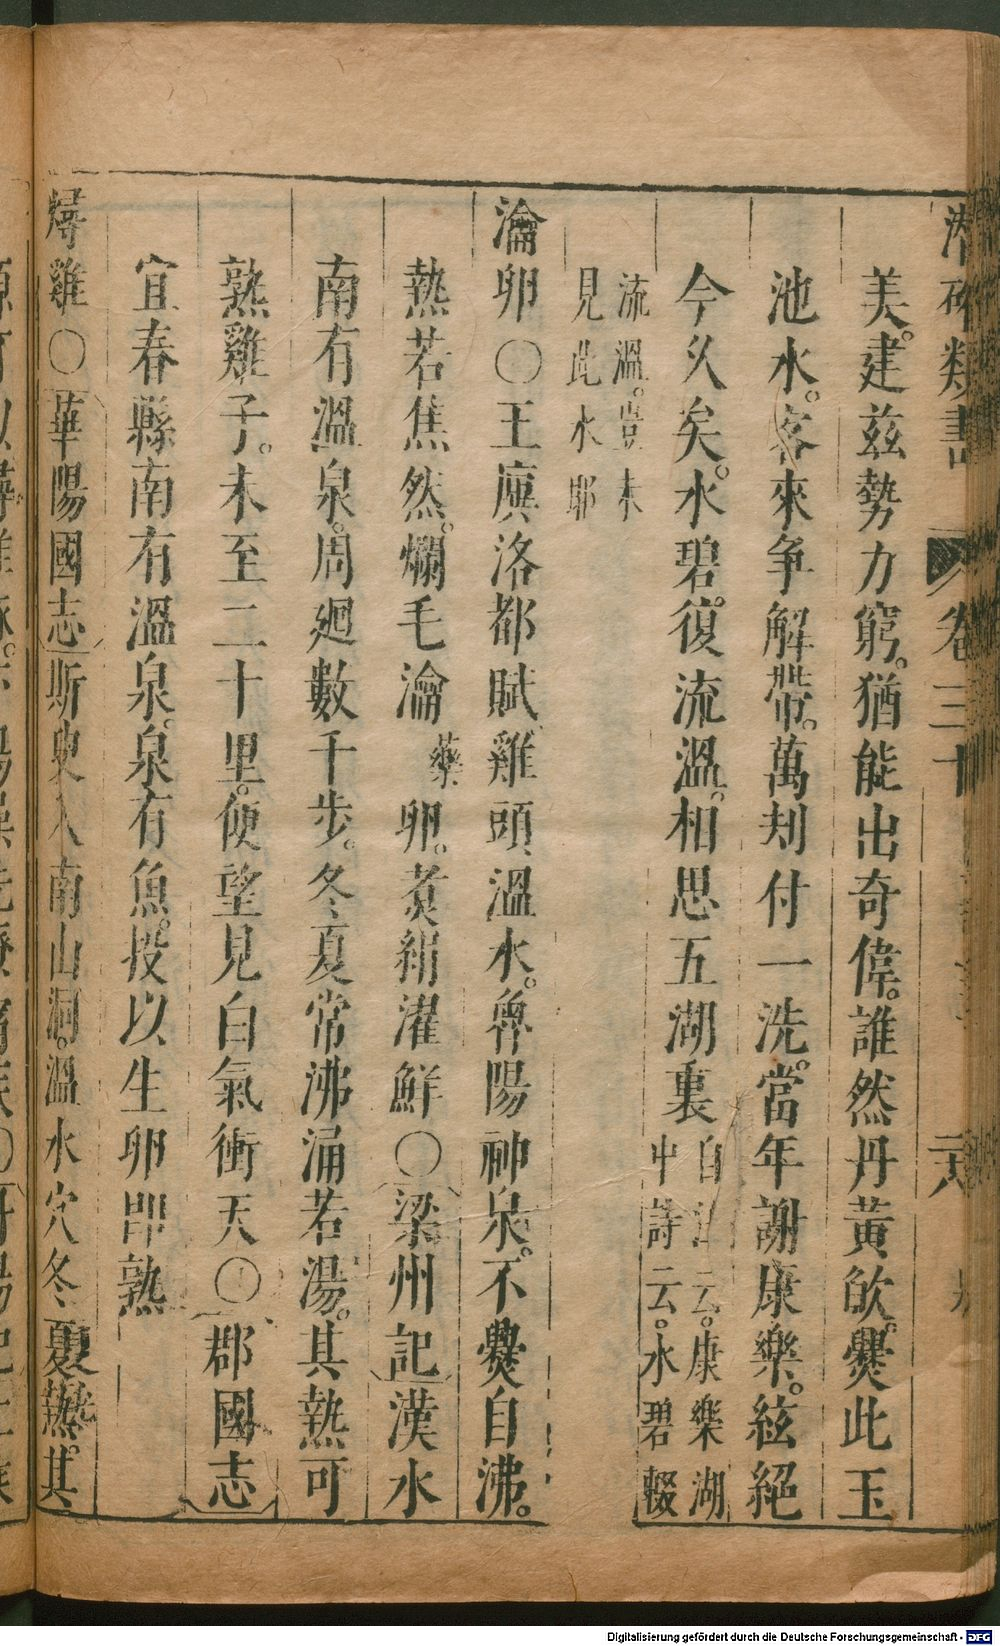 潛確類書 卷三十 二六
美建茲勢力窮猶能出奇偉誰然丹黃欿爨此玉
池水客來争解帶萬刧付一洗當年謝康樂絃絕
今久矣水碧復流溫相思五湖裏自注云康樂湖中詩云水碧輟
流溫豈未見此水耶
瀹卵○王廙洛都賦雞頭溫水魯陽神泉不爨自沸
熱若焦然爛毛瀹藥卵煑絹濯鮮○梁州記漢水
南有溫泉周廻數千步冬夏常沸涌若湯其熱可
熟雞子未至二十里便望見白氣衝天○郡國志
宜春縣南有溫泉泉有魚投以生卵卽熟
燖雞○華陽國志斯臾入南山洞溫水穴冬夏熱其
Digitalisierung gefördert durch die Deutsche Forschungsgemeinschaft - DFG